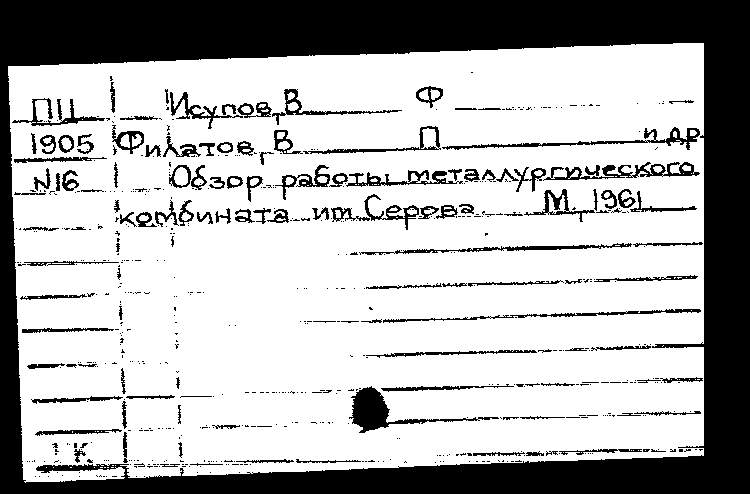 ПЦ Исупов, В Ф
1905 Филатов, В П и др
N16 Обзор работы металлургического
комбината им Серова. М, 1961.
1 К